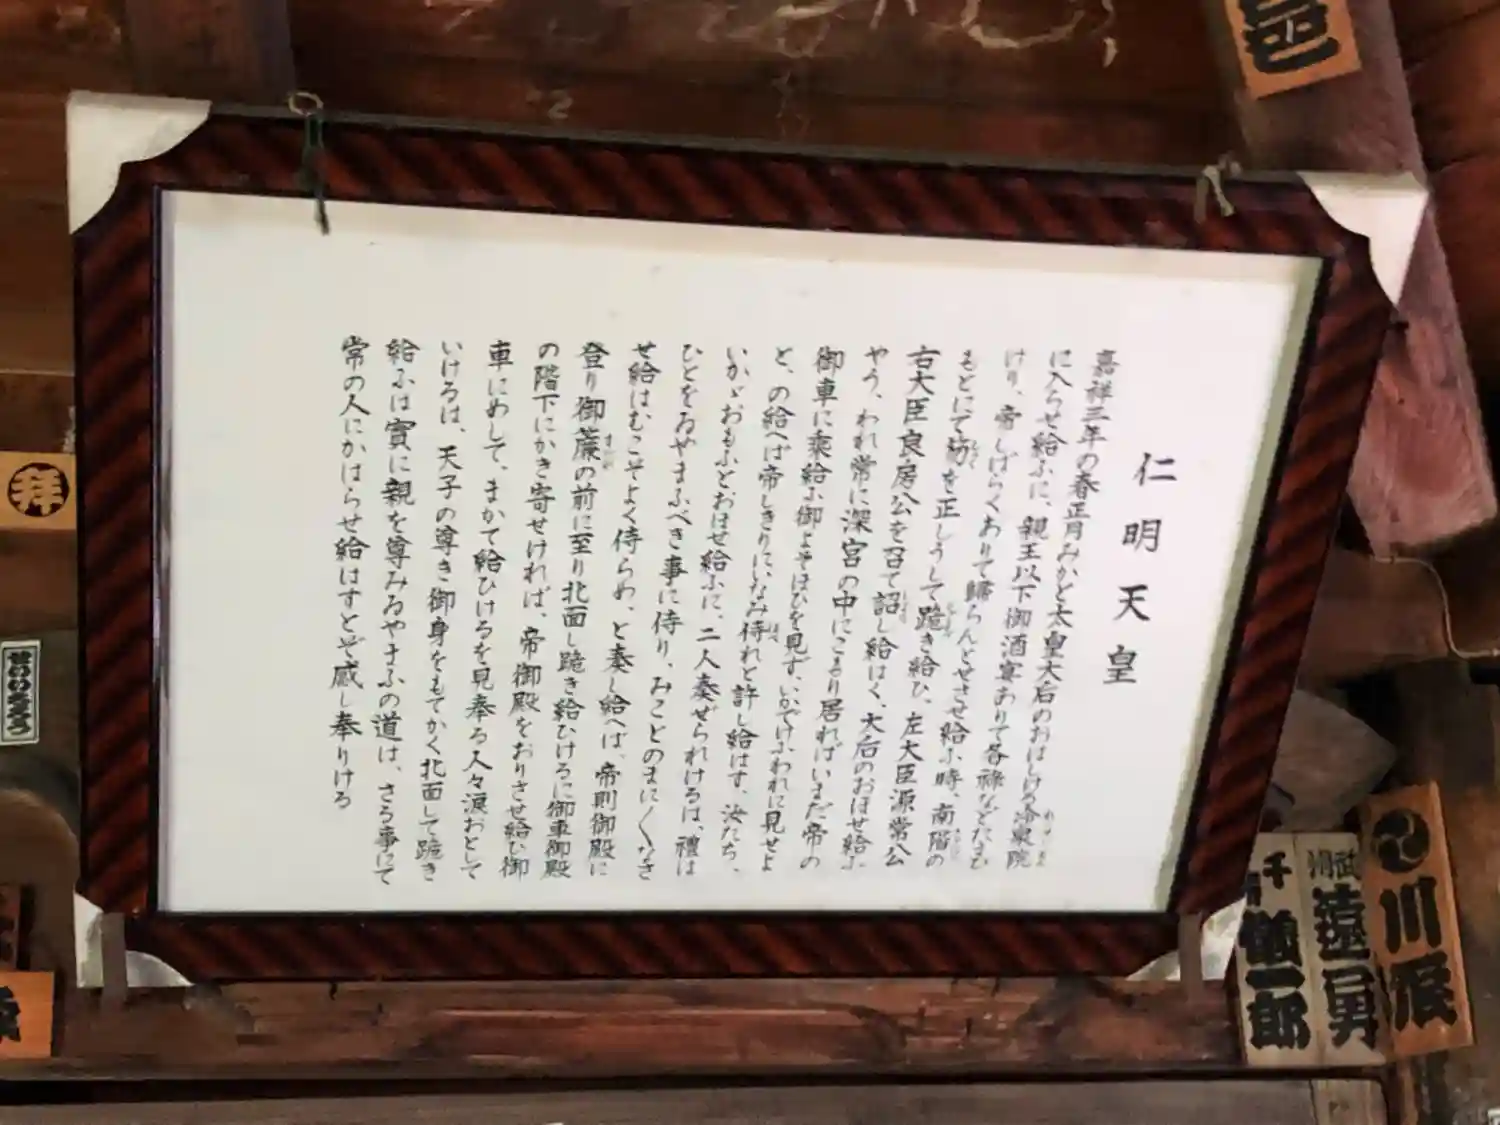 仁明天皇
嘉祥三年の春正月みかど太皇大后のおはしける冷泉院
に入らせ給ふに、親王以下御酒宴ありて各禄などたまも
けり、帝しばらくありて帰らんとせさせ給ふ時、南階の
もとにて笏を正しうして跪き給ひ、左大臣源常公
右大臣良房公を召て詔し給はく、大后のおほせ給ふ
やう、われ常に深宮の中にこもり居ればいまだ帝の
御車に乗給ふ御よそほひを見ず、いかでけふわれに見せよ
と、の給へば帝しきりにいなみ侍れど許し給はす、汝たち、
いかゞおもふとおほせ給ふに、二人奏ぜられけるは、禮は
ひとをゐやまふべき事に侍り、みことのまに〱なさ
せ給はむこそよく侍らめ、と奏し給へば、帝則御殿に
登り御簾の前に至り北面し跪き給ひけるに御車御殿
の階下にかき寄せければ、帝御殿をおりさせ給ひ御
車にめして、まかて給ひけるを見奉る人々涙おとして
いけるは、天子の尊き御身をもてかく北面して跪き
給ふは實に親を尊みゐやまふの道は、さる事にて
常の人にかはらせ給はすとぞ感し奉りける
拝
せいいちろう
千
一郎
武州
遠
男
川